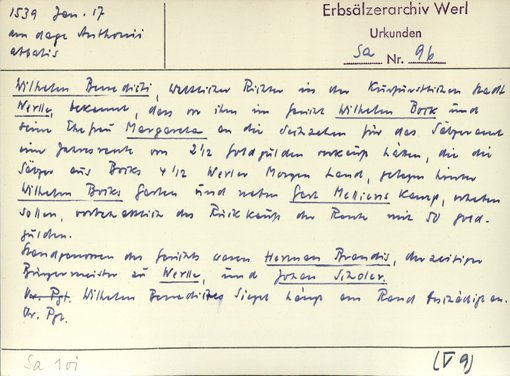 1539 Jan. 17
am dage Anthonii
abbatis
Erbsälzerarchiv Werl
Urkunden
Sa Nr. 9b
Wilhelm Benedicti, weltlicher Richter in der Kurfürstlichen Stadt
Werlle, bekennt, dass vor ihm im Gericht Wilhelm Brik und
seine Ehefrau Margareta an die Sechzehen für das Sälzeramt
eine Jahresrente von 2 1/2 Goldgulden verkauft haben, die die
Sälzer aus Briks 4 1/2 Werler Morgen Land, gelegen hinter
Wilhelm Briks Garten und neben Gert Melliens Kamp, erhalten
sollen, vorbehaltlich des Rückkaufs der Rente mit 50 Gold-
gulden.
Standgenossen des Gerichts waren Herman Brandis, derzeitiger
Bürgermeister zu Werlle, und Johan
Or. Pgt. Wilhelm Benedictes Siegel hängt am Rand beschädigt an.
Or. Pgt.
Sa 10i
(V 9)